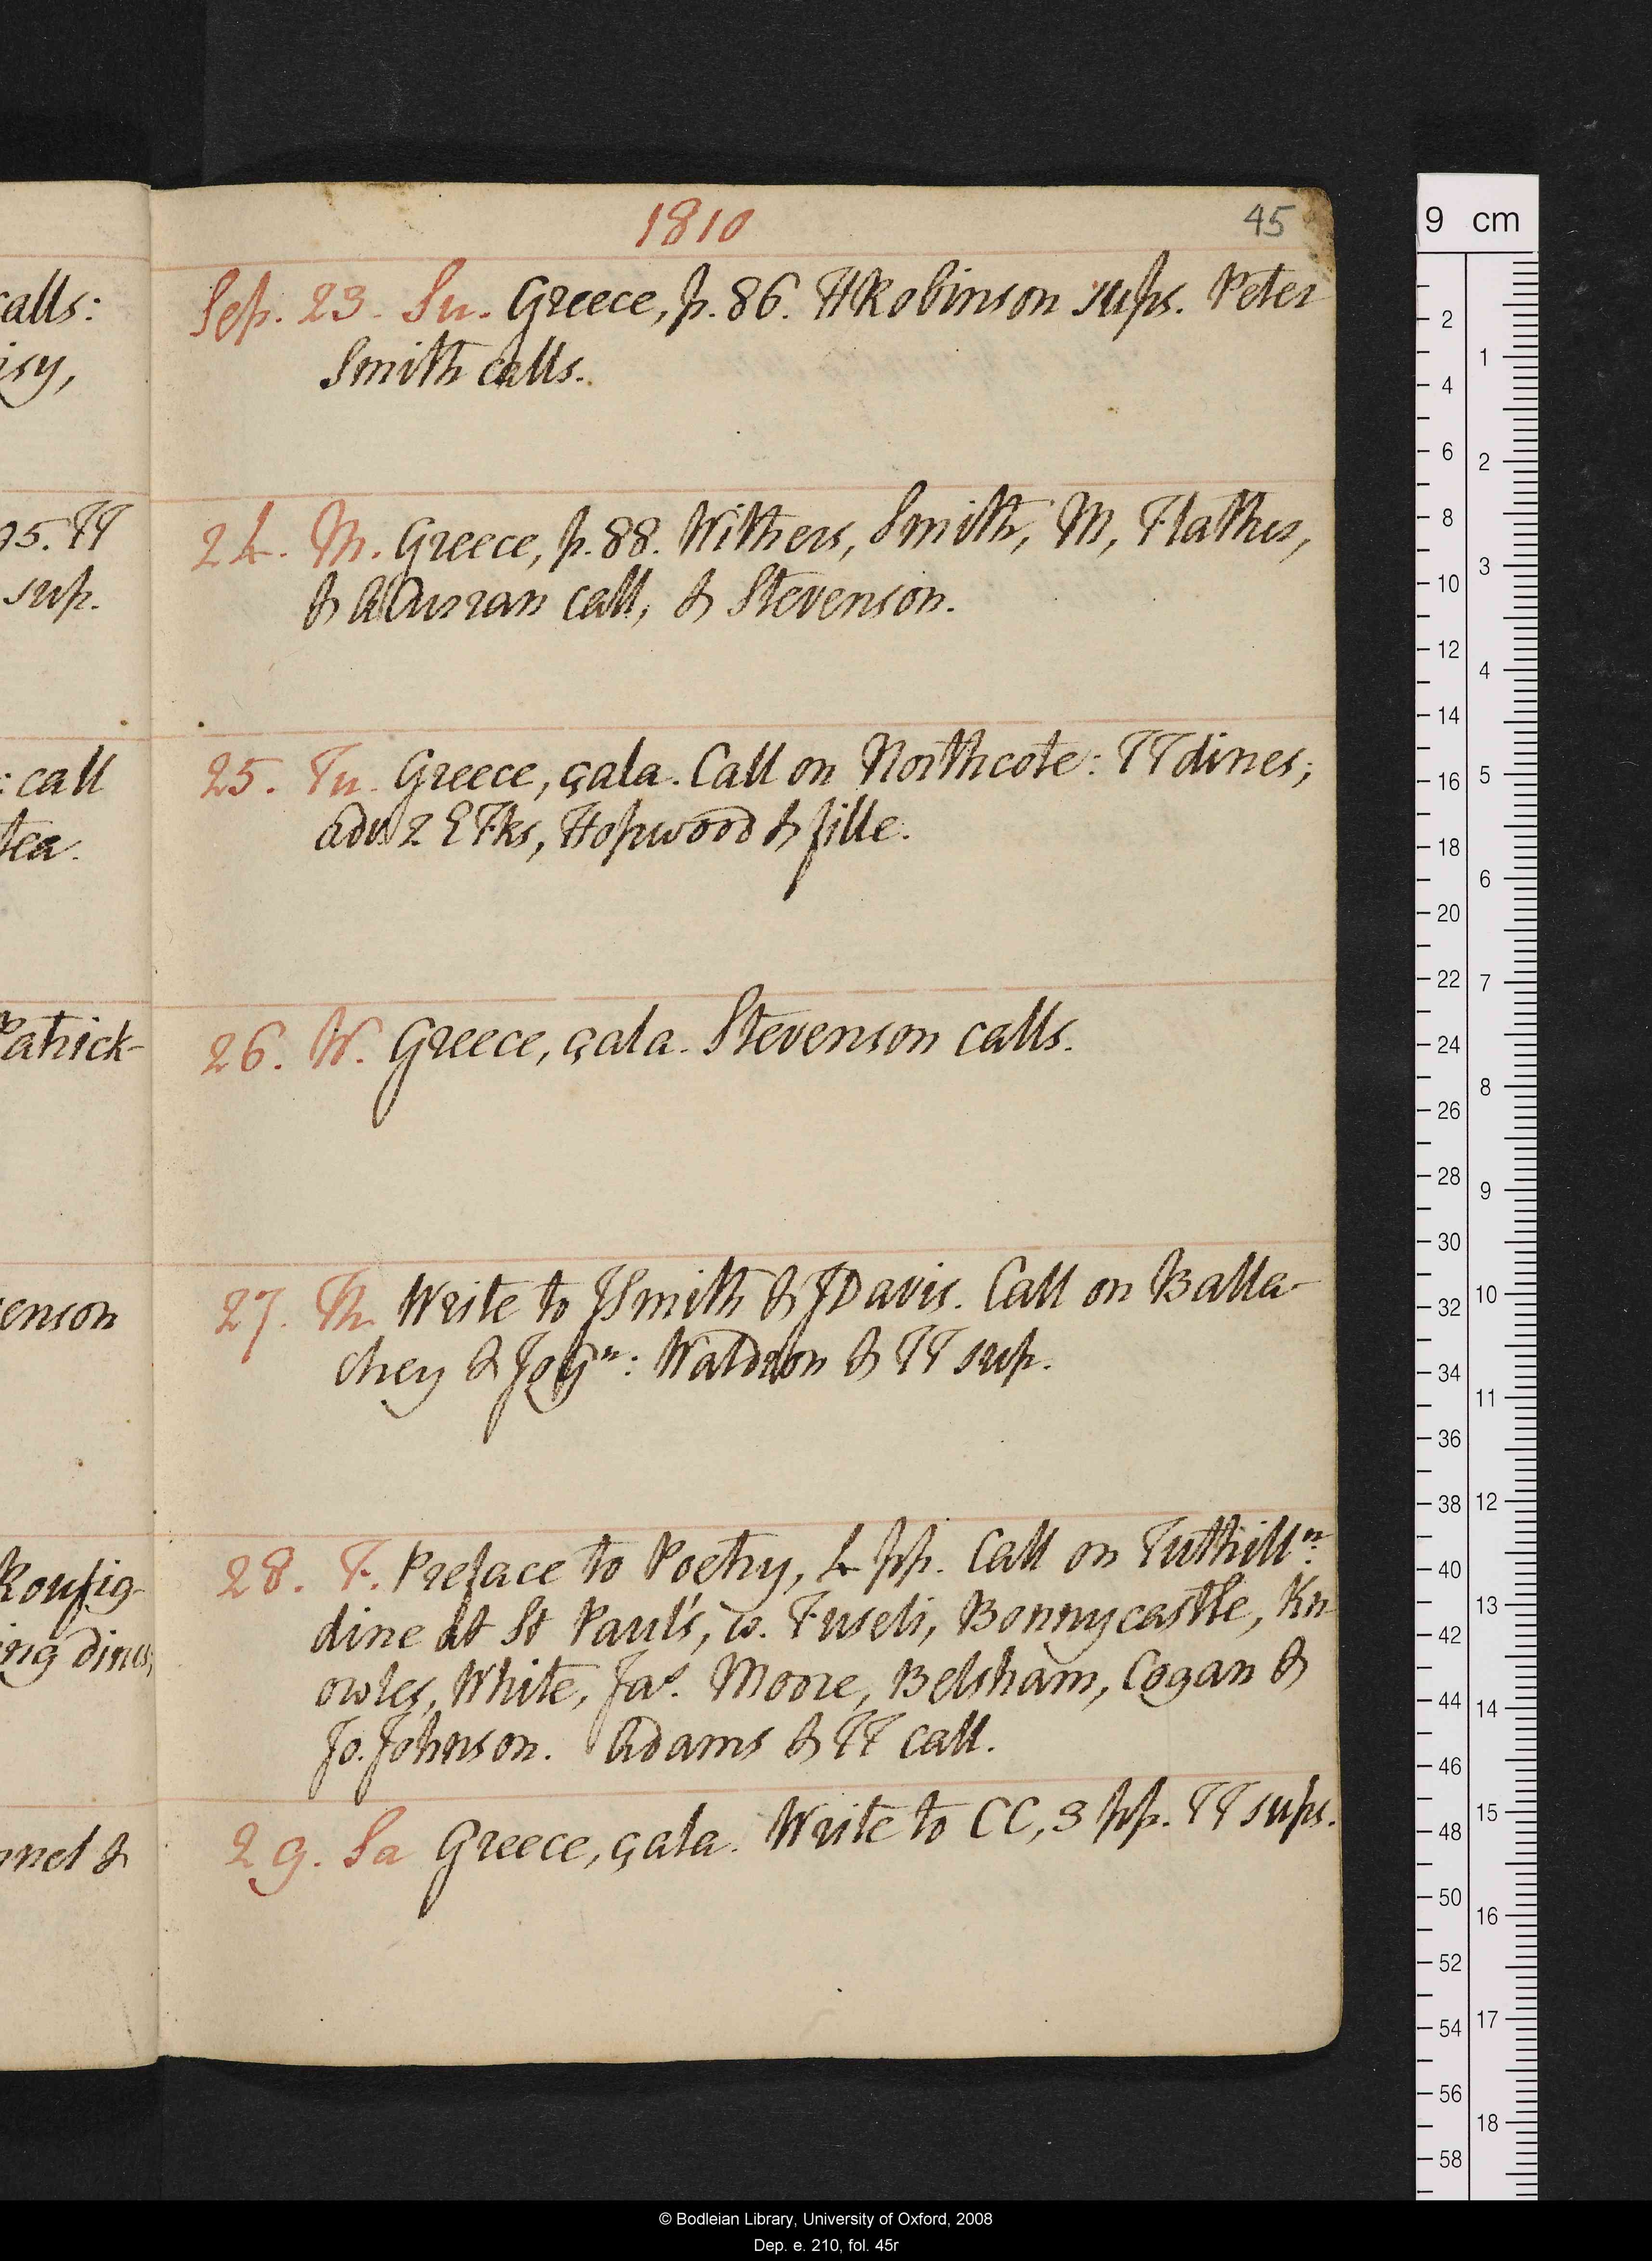 1810
45
Sep. 23. Su. Greece, p. 86. HRobinson sups. Peter
Smith calls.
24. M. Greece, p. 88. Withers, Smith, M, Flather,
& ACurran call, & Stevenson.
25. Tu. Greece, çala. Call on Northcote: TT dines;
adv. 2 EFks, Hopwood & fille.
26. W. Greece, çala. Stevenson calls.
27. Th. Write to JSmith & JDavis. Call on Balla-
chey & JoGn: Waldron & TT sup.
28. F. Preface to Poetry, 4 pp. Call on Tuthill n:
dine at St Paul's, w. Fuseli, Bonnycastle, Kn
owles, White, Jas. Moore, Belsham, Cogan &
Jo. Johnson. Adams & TT call.
29. Sa Greece, çala. Write to CC, 3 pp. TT sups.
calls:
isy,
95. TT
sup.
: call
tea.
Patrick-
enson
Roufig-
ing dines,
nnel &
9 cm
2
4
6
8
10
12
14
16
18
20
22
24
26
28
30
32
34
36
38
40
42
44
46
48
50
52
54
56
58
1
2
3
4
5
6
7
8
9
10
11
12
13
14
15
16
17
18
© Bodleian Library, University of Oxford, 2008
Dep. e. 210, fol. 45r